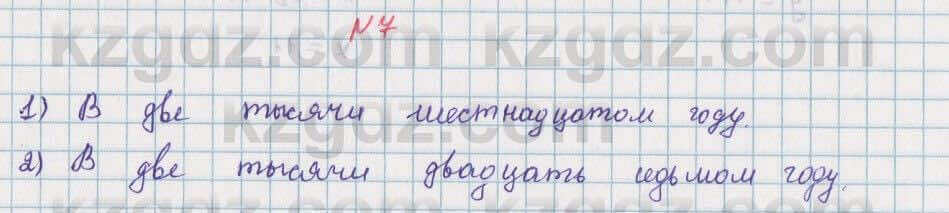 kzgdz.com kzgdz.com
№ 7
1) В две тысячи шестнадцатом году.
2) В две тысячи двадцать седьмом году.